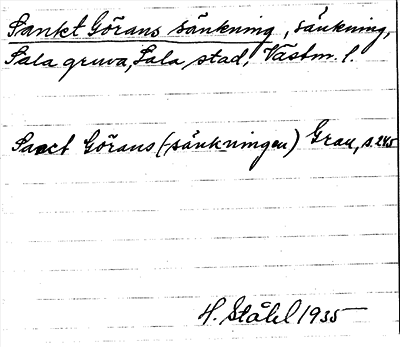 Sankt Görans sänkning, sänkning,
Sala gruva, Sala stad, Västm. l.
Sanct Görans (-sänkningen) Grau, s. 245
H. Ståhl 1935